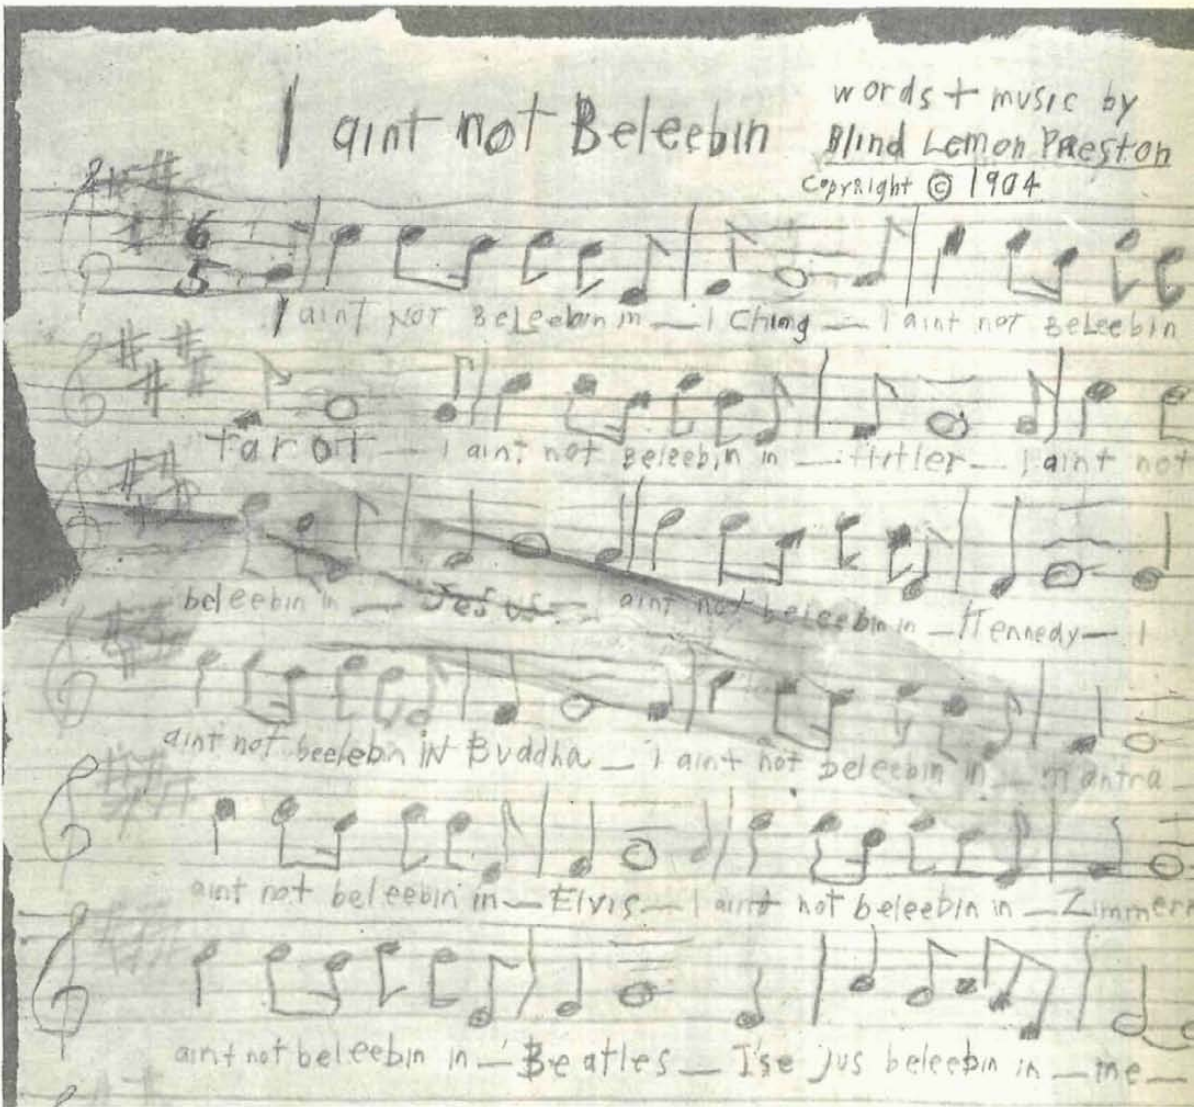 I aint not Beleebin
words + music by
Blind Lemon Preston
Copyright © 1904
6
5
I aint NOT Beleebin in — I Ching — I aint not Beleebin
tarot — I aint not Beleebin in — Hitler — I aint not
beleebin in — Jesus — I aint not beleebin in — Kennedy — I
aint not beelebin iN Buddha — i aint not beleebin in — mantra
aint not beleebin in — Elvis — I aint not beleebin in — Zimmer
aint not beleebin in — Beatles — I'se jus beleebin in — me —